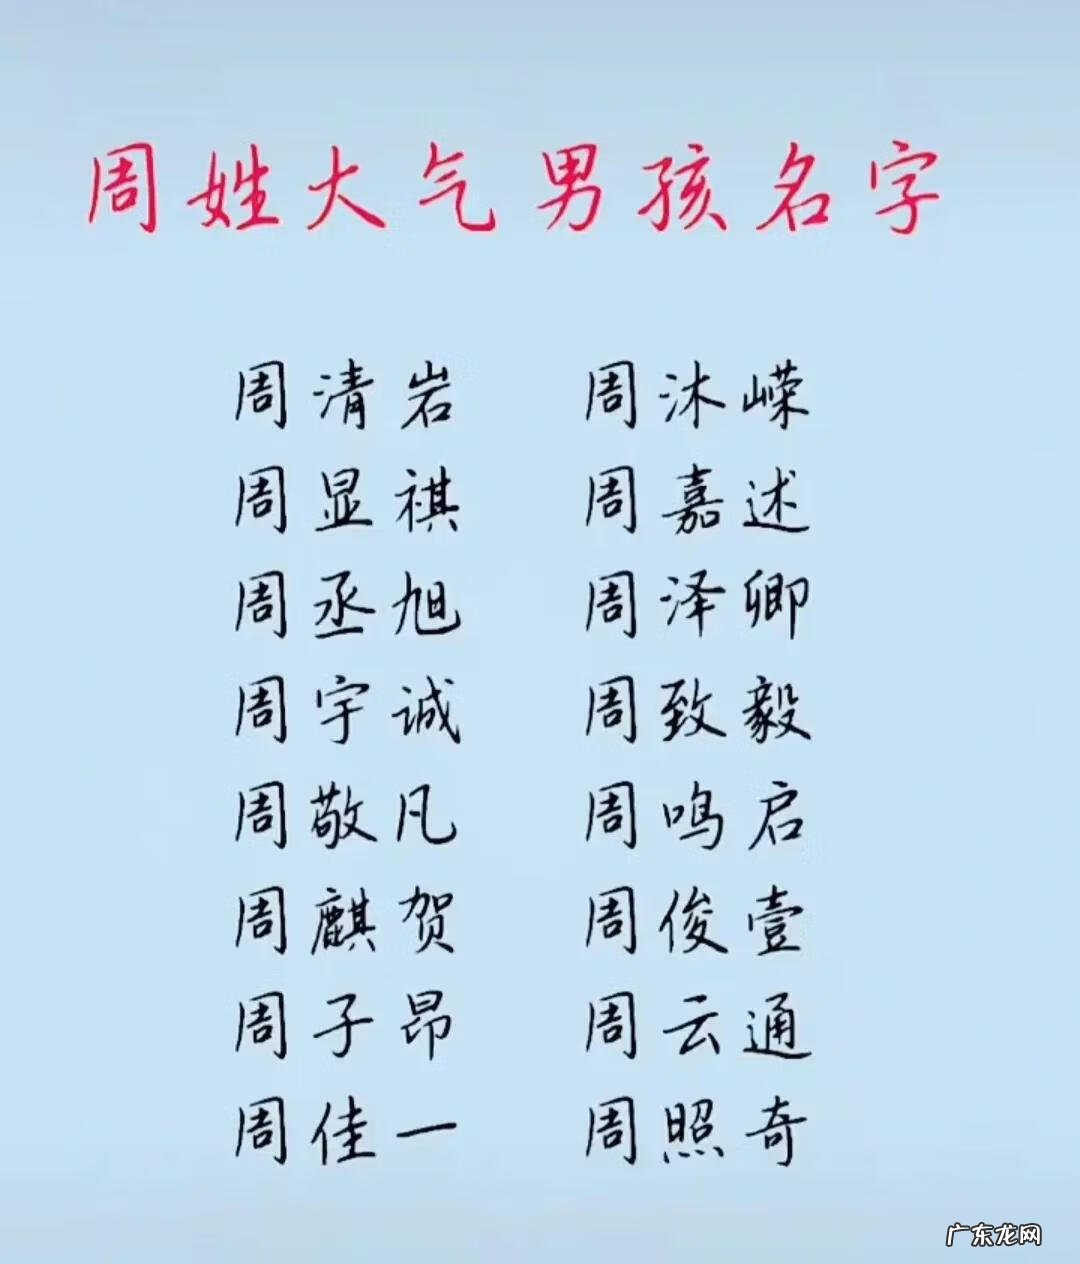 周姓大气男孩名字
周清岩 周沐嵘
周显祺 周嘉述
周丞旭 周泽卿
周宇诚 周致毅
周敬凡 周鸣启
周麒贺 周俊壹
周子昂 周云通
周佳一 周照奇
广东龙网